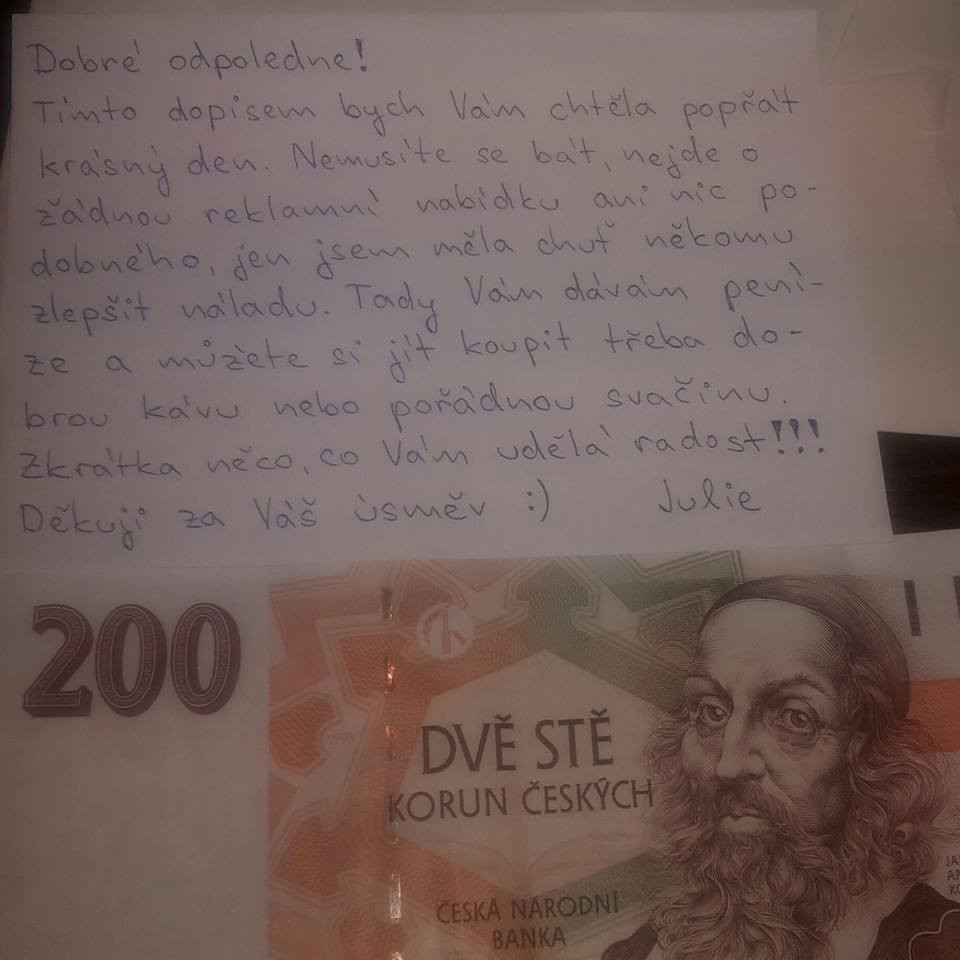 Dobré odpoledne!
Tímto dopisem bych Vám chtěla popřát
krásný den. Nemusíte se bát, nejde o
žádnou reklamní nabídku ani nic po-
dobného, jen jsem měla chuť někomu
zlepšit náladu. Tady Vám dávám pení-
ze a můžete si jít koupit třeba do-
brou kávu nebo pořádnou svačinu.
Zkrátka něco, co Vám udělá radost!!!
Děkuji za Váš úsměv :) Julie
200
DVĚ STĚ
KORUN ČESKÝCH
ČESKÁ NÁRODNÍ
BANKA